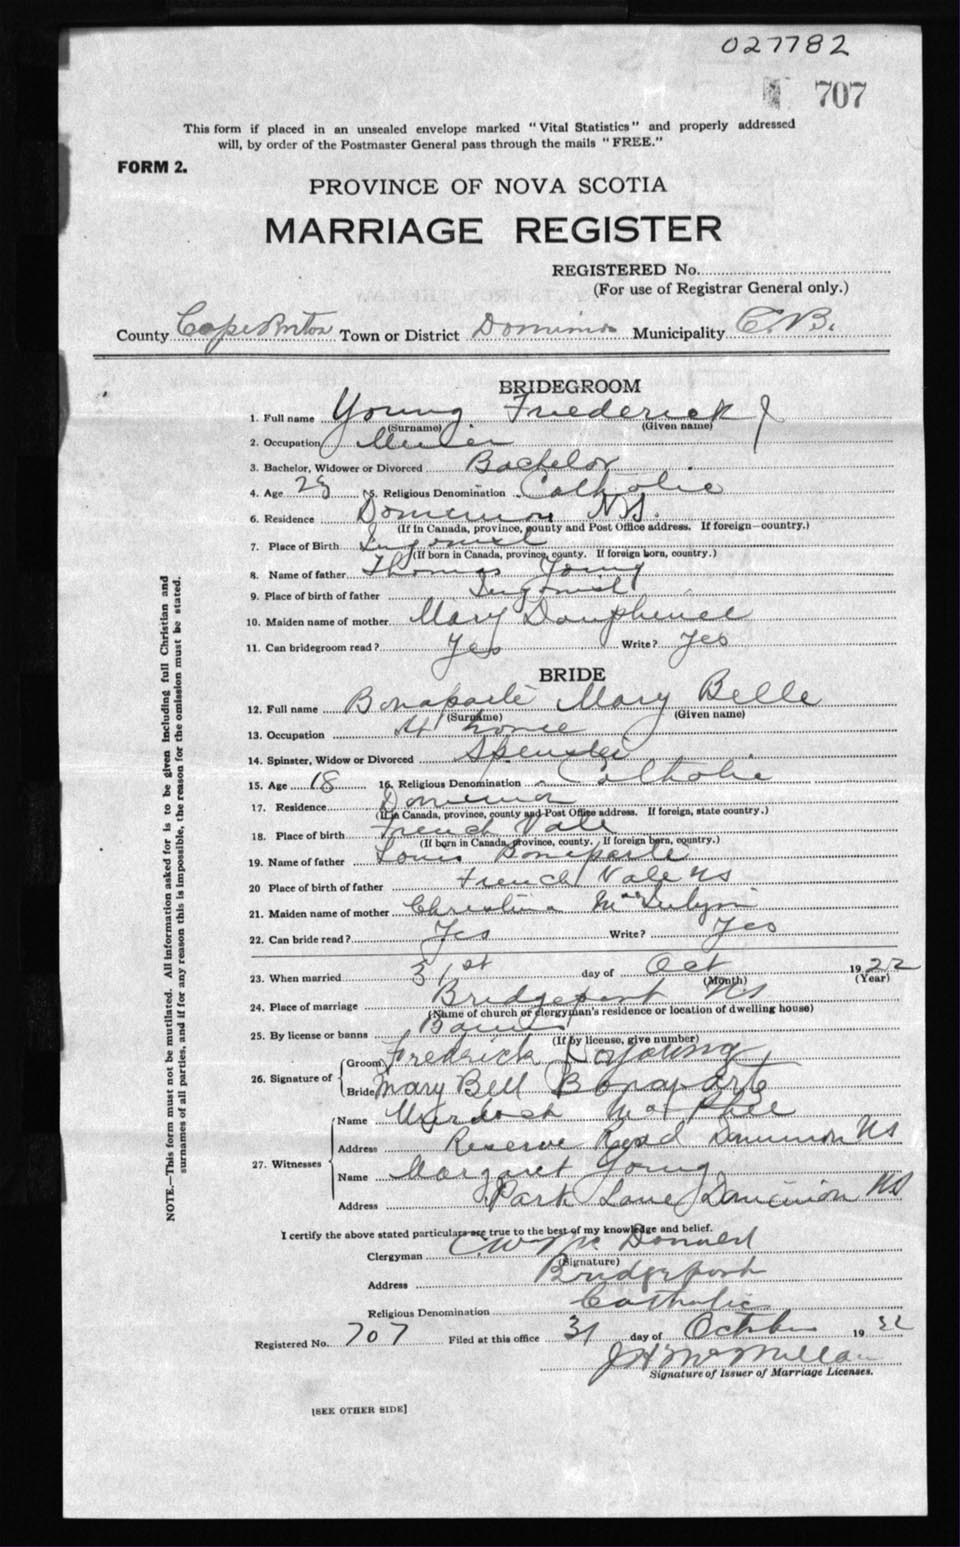 027782
707
This form if placed in an unsealed envelope marked "Vital Statistics" and properly addressed
will, by order of the Postmaster General pass through the mails "FREE."
FORM 2.
PROVINCE OF NOVA SCOTIA
MARRIAGE REGISTER
REGISTERED No.
(For use of Registrar General only.)
County Cape Breton Town or District Dominion Municipality C.B.
BRIDEGROOM
1. Full name Young Frederick J
(Surname) (Given name)
2. Occupation Miner
3. Bachelor, Widower or Divorced Bachelor
4. Age 5. Religious Denomination Catholic
6. Residence Dominion N.S.
(If in Canada, province, county and Post Office address. If foreign—country.)
7. Place of Birth Ingonish
(If born in Canada, province, county. If foreign born, country.)
8. Name of father Thomas Young
9. Place of birth of father Ingonish
10. Maiden name of mother Mary Dauphinee
11. Can bridegroom read? Yes Write? Yes
BRIDE
12. Full name Bonaparte Mary Belle
(Surname) (Given name)
13. Occupation At home
14. Spinster, Widow or Divorced Spinster
15. Age 18 16. Religious Denomination Catholic
17. Residence Dominion
(If in Canada, province, county and Post Office address. If foreign, state country.)
18. Place of birth French Vale
(If born in Canada, province, county. If foreign born, country.)
19. Name of father Louis Bonaparte
20 Place of birth of father French Vale NS
21. Maiden name of mother Christina
22. Can bride read? Yes Write? Yes
23. When married 31st day of Oct 1922
(Month) (Year)
24. Place of marriage Bridgeport NS
(Name of church or clergyman's residence or location of dwelling house)
25. By license or banns Banns
(If by license, give number)
26. Signature of Groom Fredrick Young
Bride Mary Bell Bonaparte
27. Witnesses Name Murdoch MacPhee
Address Reserve Road Dominion NS
Name Margaret Young
Address Park Lane Dominion NS
I certify the above stated particulars are true to the best of my knowledge and belief.
Clergyman C W McDonald
(Signature)
Address Bridgeport
Religious Denomination Catholic
Registered No. 707 Filed at this office 31 day of October 1922
J H McMillan
Signature of Issuer of Marriage Licenses.
[SEE OTHER SIDE]
NOTE.—This form must not be mutilated. All information asked for is to be given including full Christian and
surnames of all parties, and if for any reason this is impossible, the reason for the omission must be stated.